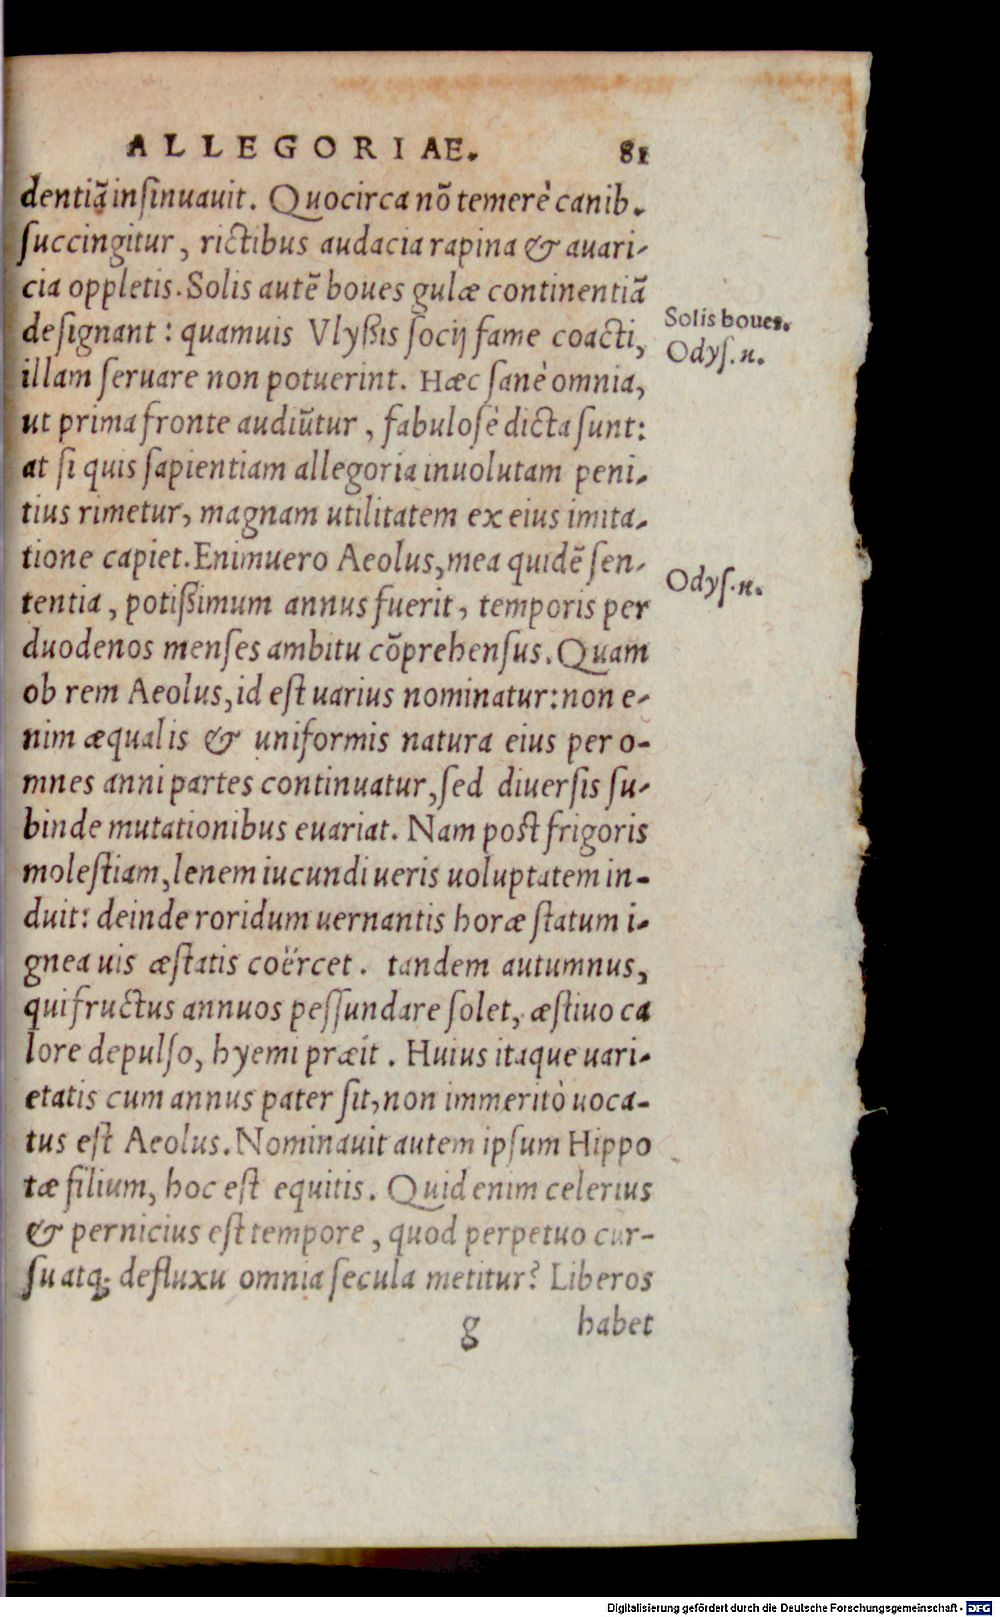 ALLEGORIAE. 81
dentiã inſinuauit. Quocirca nõ temerè canib.
ſuccingitur, rictibus audacia rapina & auari-
cia oppletis. Solis autẽ boues gulæ continentiã
deſignant: quamuis Vlyßis ſocij fame coacti,
Solis boues.
Odyſ. n.
illam ſeruare non potuerint. Hæc ſanè omnia,
ut prima fronte audiũtur, fabuloſè dicta ſunt:
at ſi quis ſapientiam allegoria inuolutam peni-
tius rimetur, magnam utilitatem ex eius imita-
tione capiet. Enimuero Aeolus, mea quidẽ ſen-
Odyſ. n.
tentia, potißimum annus fuerit, temporis per
duodenos menſes ambitu cõprehenſus. Quam
ob rem Aeolus, id eſt uarius nominatur: non e-
nim æqualis & uniformis natura eius per o-
mnes anni partes continuatur, ſed diuerſis ſu-
binde mutationibus euariat. Nam poſt frigoris
moleſtiam, lenem iucundi ueris uoluptatem in-
duit: deinde roridum uernantis horæ ſtatum i-
gnea uis æſtatis coërcet. tandem autumnus,
qui fructus annuos peſſundare ſolet, æſtiuo ca
lore depulſo, hyemi præit. Huius itaque uari-
etatis cum annus pater ſit, non immeritò uoca-
tus eſt Aeolus. Nominauit autem ipſum Hippo
tæ filium, hoc eſt equitis. Quid enim celerius
& pernicius eſt tempore, quod perpetuo cur-
ſu atq; defluxu omnia ſecula metitur? Liberos
g habet
Digitalisierung gefördert durch die Deutsche Forschungsgemeinschaft - DFG